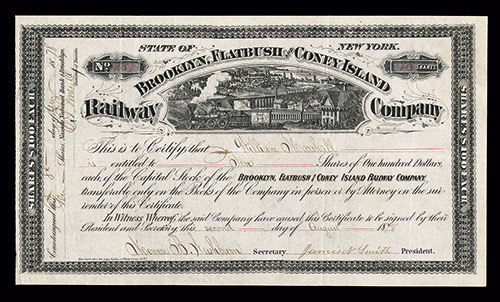 STATE OF NEW YORK.
No
SHARES
BROOKLYN, FLATBUSH AND CONEY ISLAND
Railway Company
This is to Certify, that William Marshall
is entitled to Shares of One Hundred Dollars,
each, of the Capital Stock of the BROOKLYN, FLATBUSH & CONEY ISLAND RAILWAY COMPANY
transferable only on the Books of the Company in person or by Attorney on the sur-
render of this Certificate.
In Witness Whereof, the said Company have caused this Certificate to be signed by their
President and Secretary this second day of August 18
Secretary. James N. Smith President.
SHARES $100 EACH.
SHARES $100 EACH.
Countersigned this day of 187